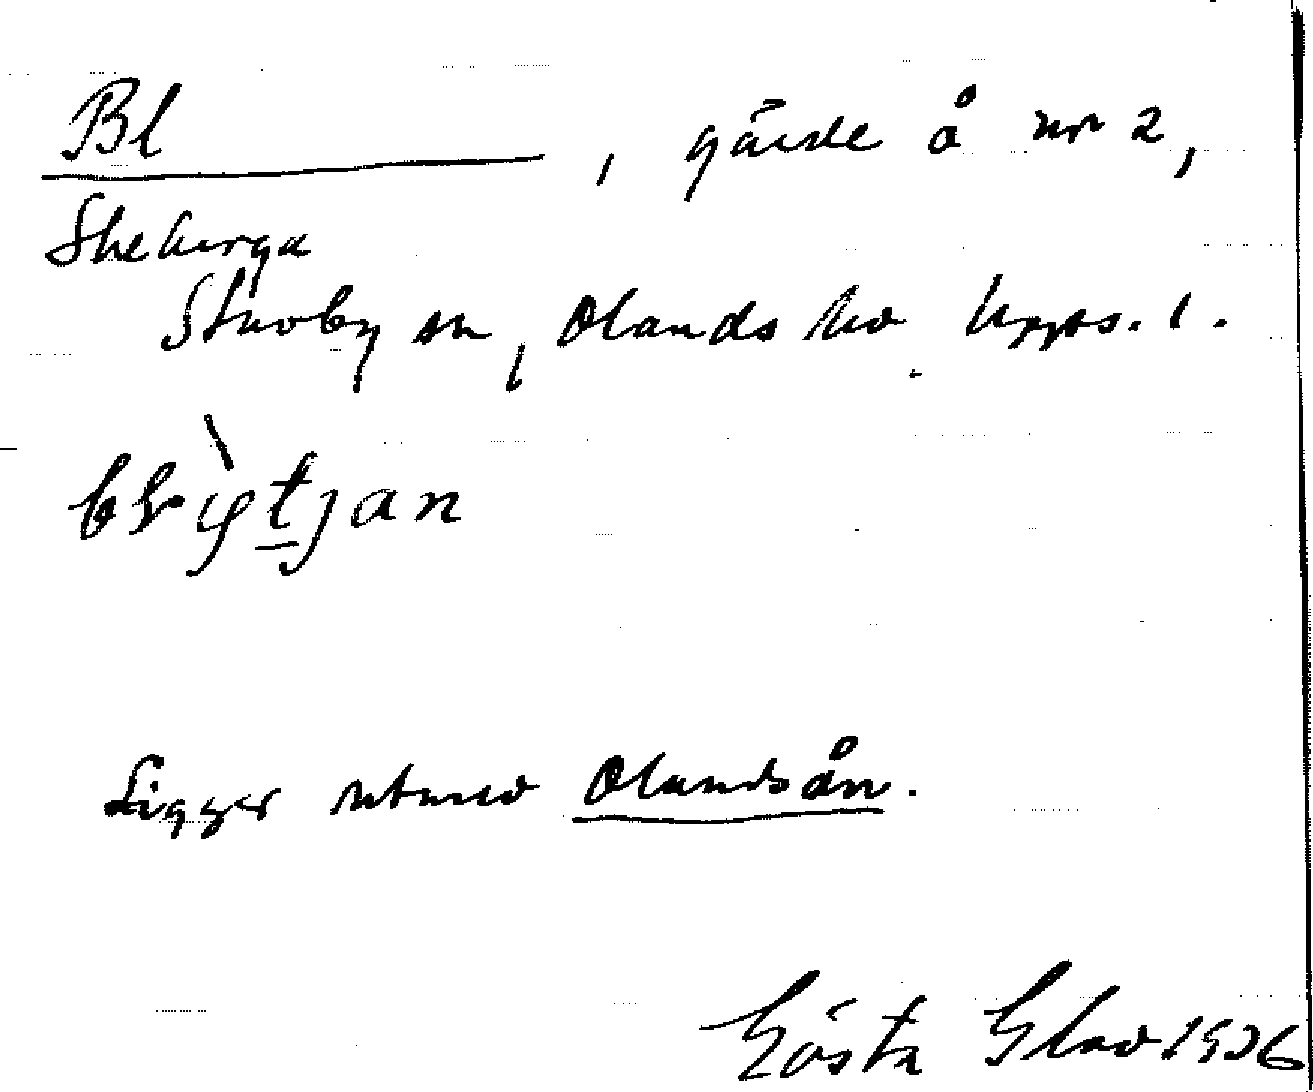 Bl , gärde å nr 2,
Skeberga
Skuvby sn, Olands hd Upps. l.
Ligger utmed Olandsån.
Gösta Glad 1936